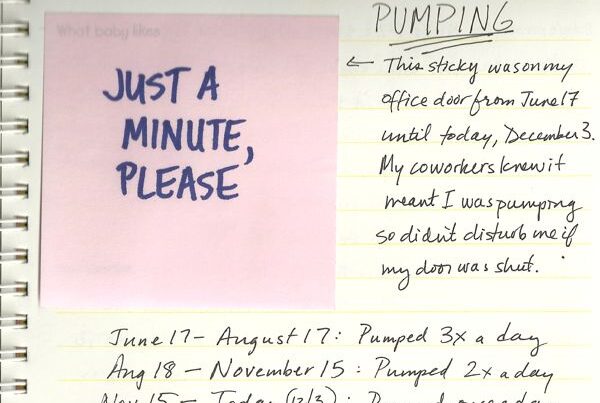 What baby likes
JUST A
MINUTE,
PLEASE
PUMPING
← This sticky was on my
office door from June 17
until today, December 3.
My coworkers knew it
meant I was pumping
so didn't disturb me if
my door was shut.
June 17 - August 17: Pumped 3x a day
Aug 18 - November 15: Pumped 2x a day
Nov 15 - Today (12/3): Pumped once a day